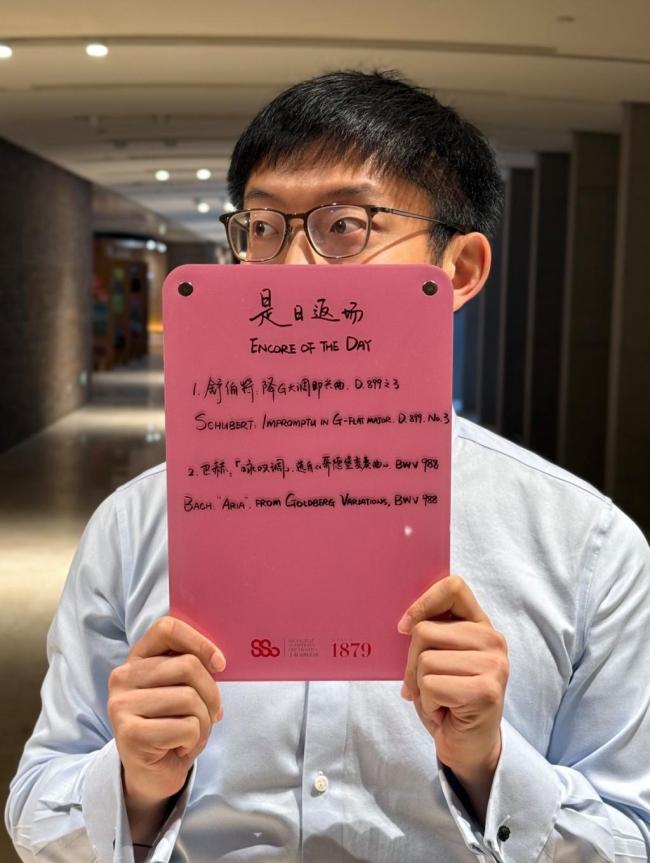 是日返场
ENCORE OF THE DAY
1. 舒伯特: 降G大调即兴曲. D.899之3
SCHUBERT: IMPROMPTU IN G-FLAT MAJOR. D.899. No.3
2. 巴赫: 「咏叹调」. 选自《哥德堡变奏曲》. BWV 988
BACH: "ARIA". FROM GOLDBERG VARIATIONS, BWV 988
SSO
1879